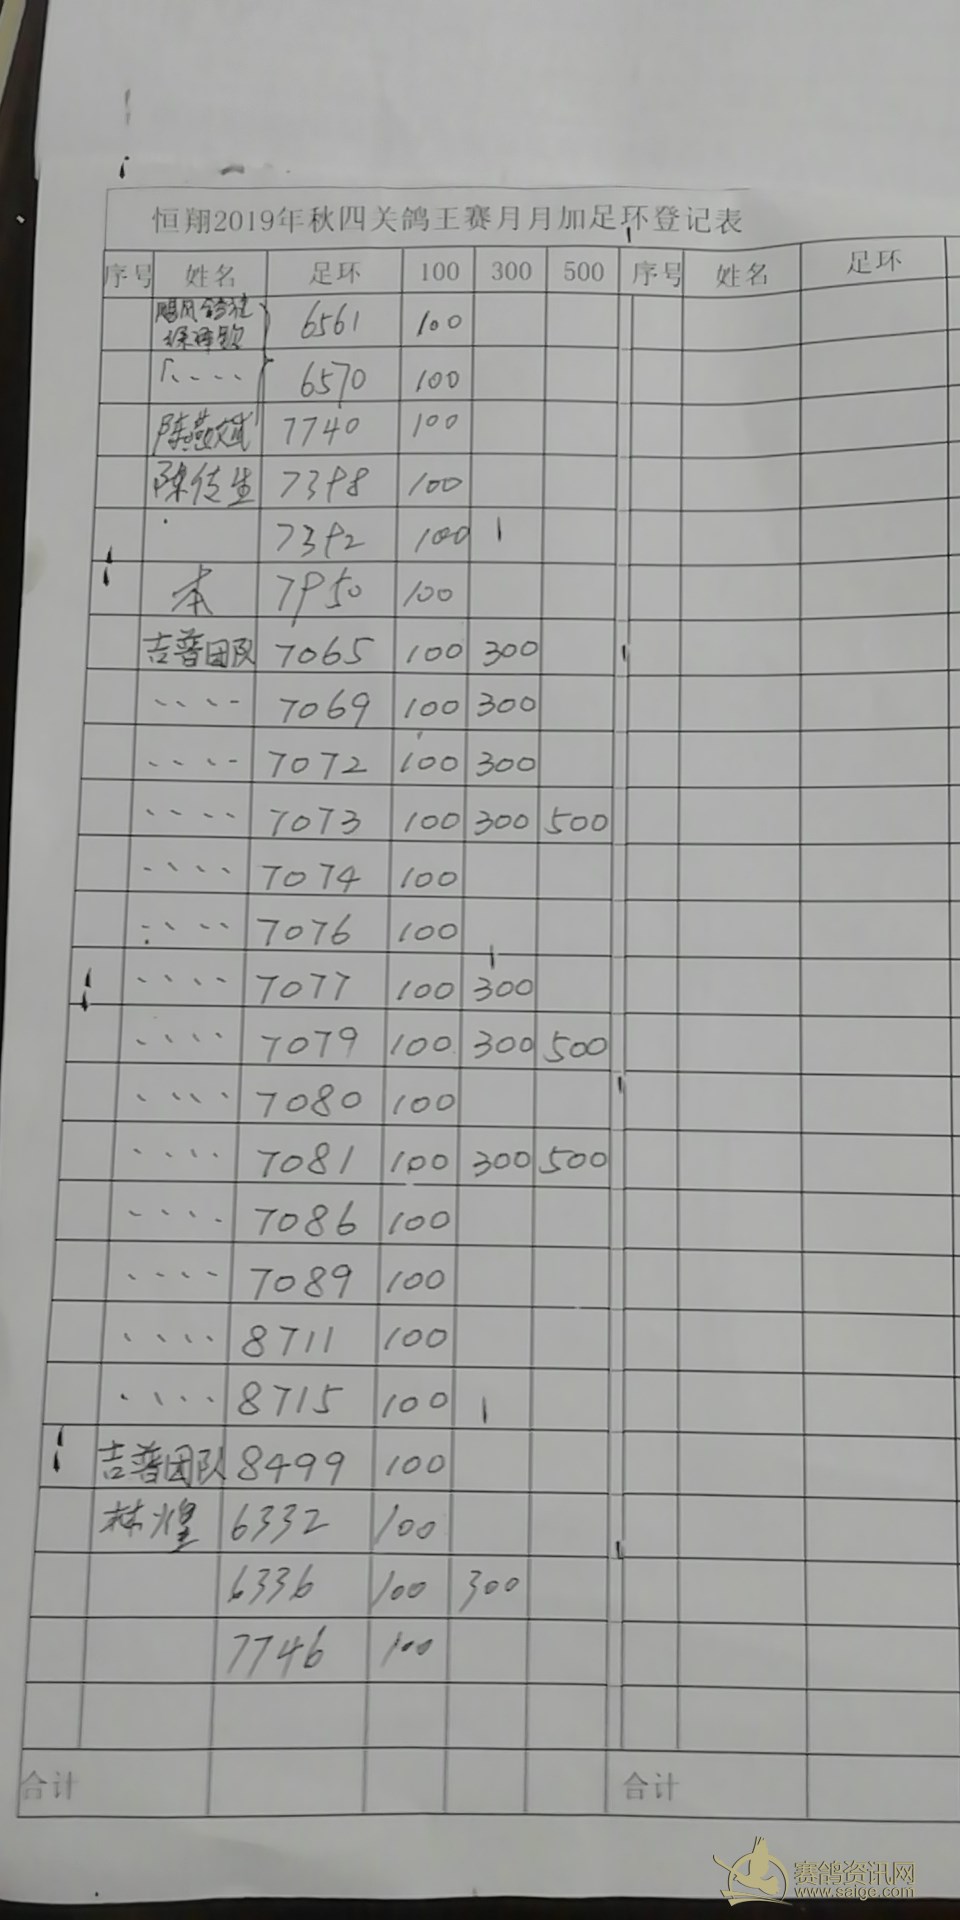 恒翔2019年秋四关鸽王赛月月加足环登记表
序号 姓名 足环 100 300 500 序号 姓名 足环
飓风鸽舍 6561 100
6570 100
陈燕斌 7740 100
陈传生 7398 100
7392 100
本 7950 100
吉普团队 7065 100 300
7069 100 300
7072 100 300
7073 100 300 500
7074 100
7076 100
7077 100 300
7079 100 300 500
7080 100
7081 100 300 500
7086 100
7089 100
8711 100
8715 100
吉普团队 8499 100
林煌 6332 100
6336 100 300
7746 100
合计 合计
赛鸽资讯网
www.saigc.com